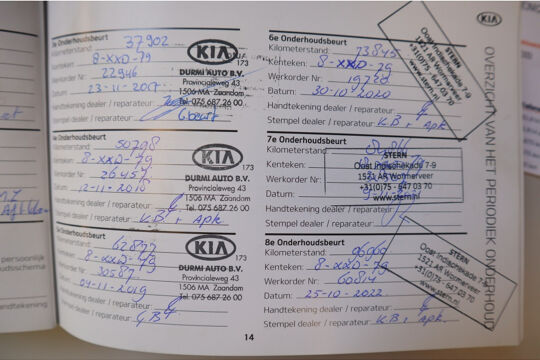 3e Onderhoudsbeurt
Kilometerstand: 37902
Kenteken: 8-XXD-79
Werkorder Nr: 22946
Datum: 23-11-2017
Handtekening dealer / reparateur:
Stempel dealer / reparateur: G beurt
KIA
173
DURMI AUTO B.V.
Provincialeweg 43
1506 MA Zaandam
Tel. 075 687 26 00
4e Onderhoudsbeurt
Kilometerstand: 50798
Kenteken: 8-XXD-79
26457
12-11-2018
Handtekening dealer / reparateur:
Stempel dealer / reparateur: K.B, apk
KIA
173
DURMI AUTO B.V.
Provincialeweg 43
1506 MA Zaandam
Tel. 075 687 26 00
Onderhoudsbeurt
Kilometerstand: 62877
Kenteken: 8-XXD-79
30587
04-11-2019
dealer / reparateur:
Stempel dealer / reparateur: G.B
KIA
173
DURMI AUTO B.V.
Provincialeweg 43
1506 MA Zaandam
Tel. 075 687 26 00
6e Onderhoudsbeurt
Kilometerstand: 73845
Kenteken: 8-XXD-79
Werkorder Nr: 19728
Datum: 30-10-2020
Handtekening dealer / reparateur:
Stempel dealer / reparateur: K.B, apk
STERN
Oost Indischekade 7-9
1521 AR Wormerveer
+31(0)75 - 647 03 70
www.stern.nl
7e Onderhoudsbeurt
Kilometerstand:
Kenteken:
Werkorder Nr:
Datum:
Handtekening dealer / reparateur:
Stempel dealer / reparateur:
STERN
Oost Indischekade 7-9
1521 AR Wormerveer
+31(0)75 - 647 03 70
www.stern.nl
8e Onderhoudsbeurt
Kilometerstand:
Kenteken: 8-XXD-79
Werkorder Nr: 60814
Datum: 25-10-2022
Handtekening dealer / reparateur:
Stempel dealer / reparateur: K.B, apk
STERN
Oost Indischekade 7-9
1521 AR Wormerveer
+31(0)75 - 647 03 70
www.stern.nl
KIA
OVERZICHT VAN HET PERIODIEK ONDERHOUD
persoonlijk
udsschema
ndtekening
14